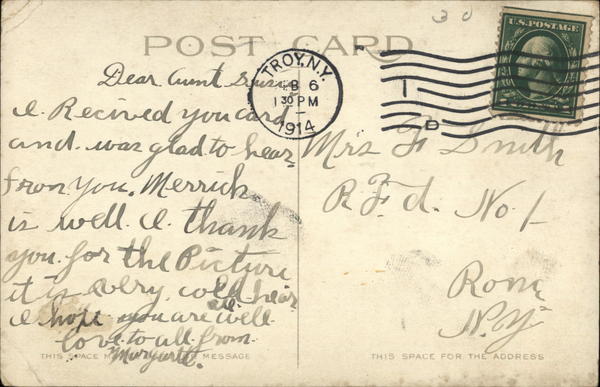 30
U.S. POSTAGE
POST CARD
TROY, N.Y.
6
1 30 PM
1914
Dear Aunt
I Recived you card
and was glad to hear
from you. Merrick
is well I thank
you for the Picture
it is very cold hear
I hope you are well
love to all from
THIS SPACE MESSAGE
Mrs F Smith
R.F.d. No. 1
Rome
N.Y.
THIS SPACE FOR THE ADDRESS